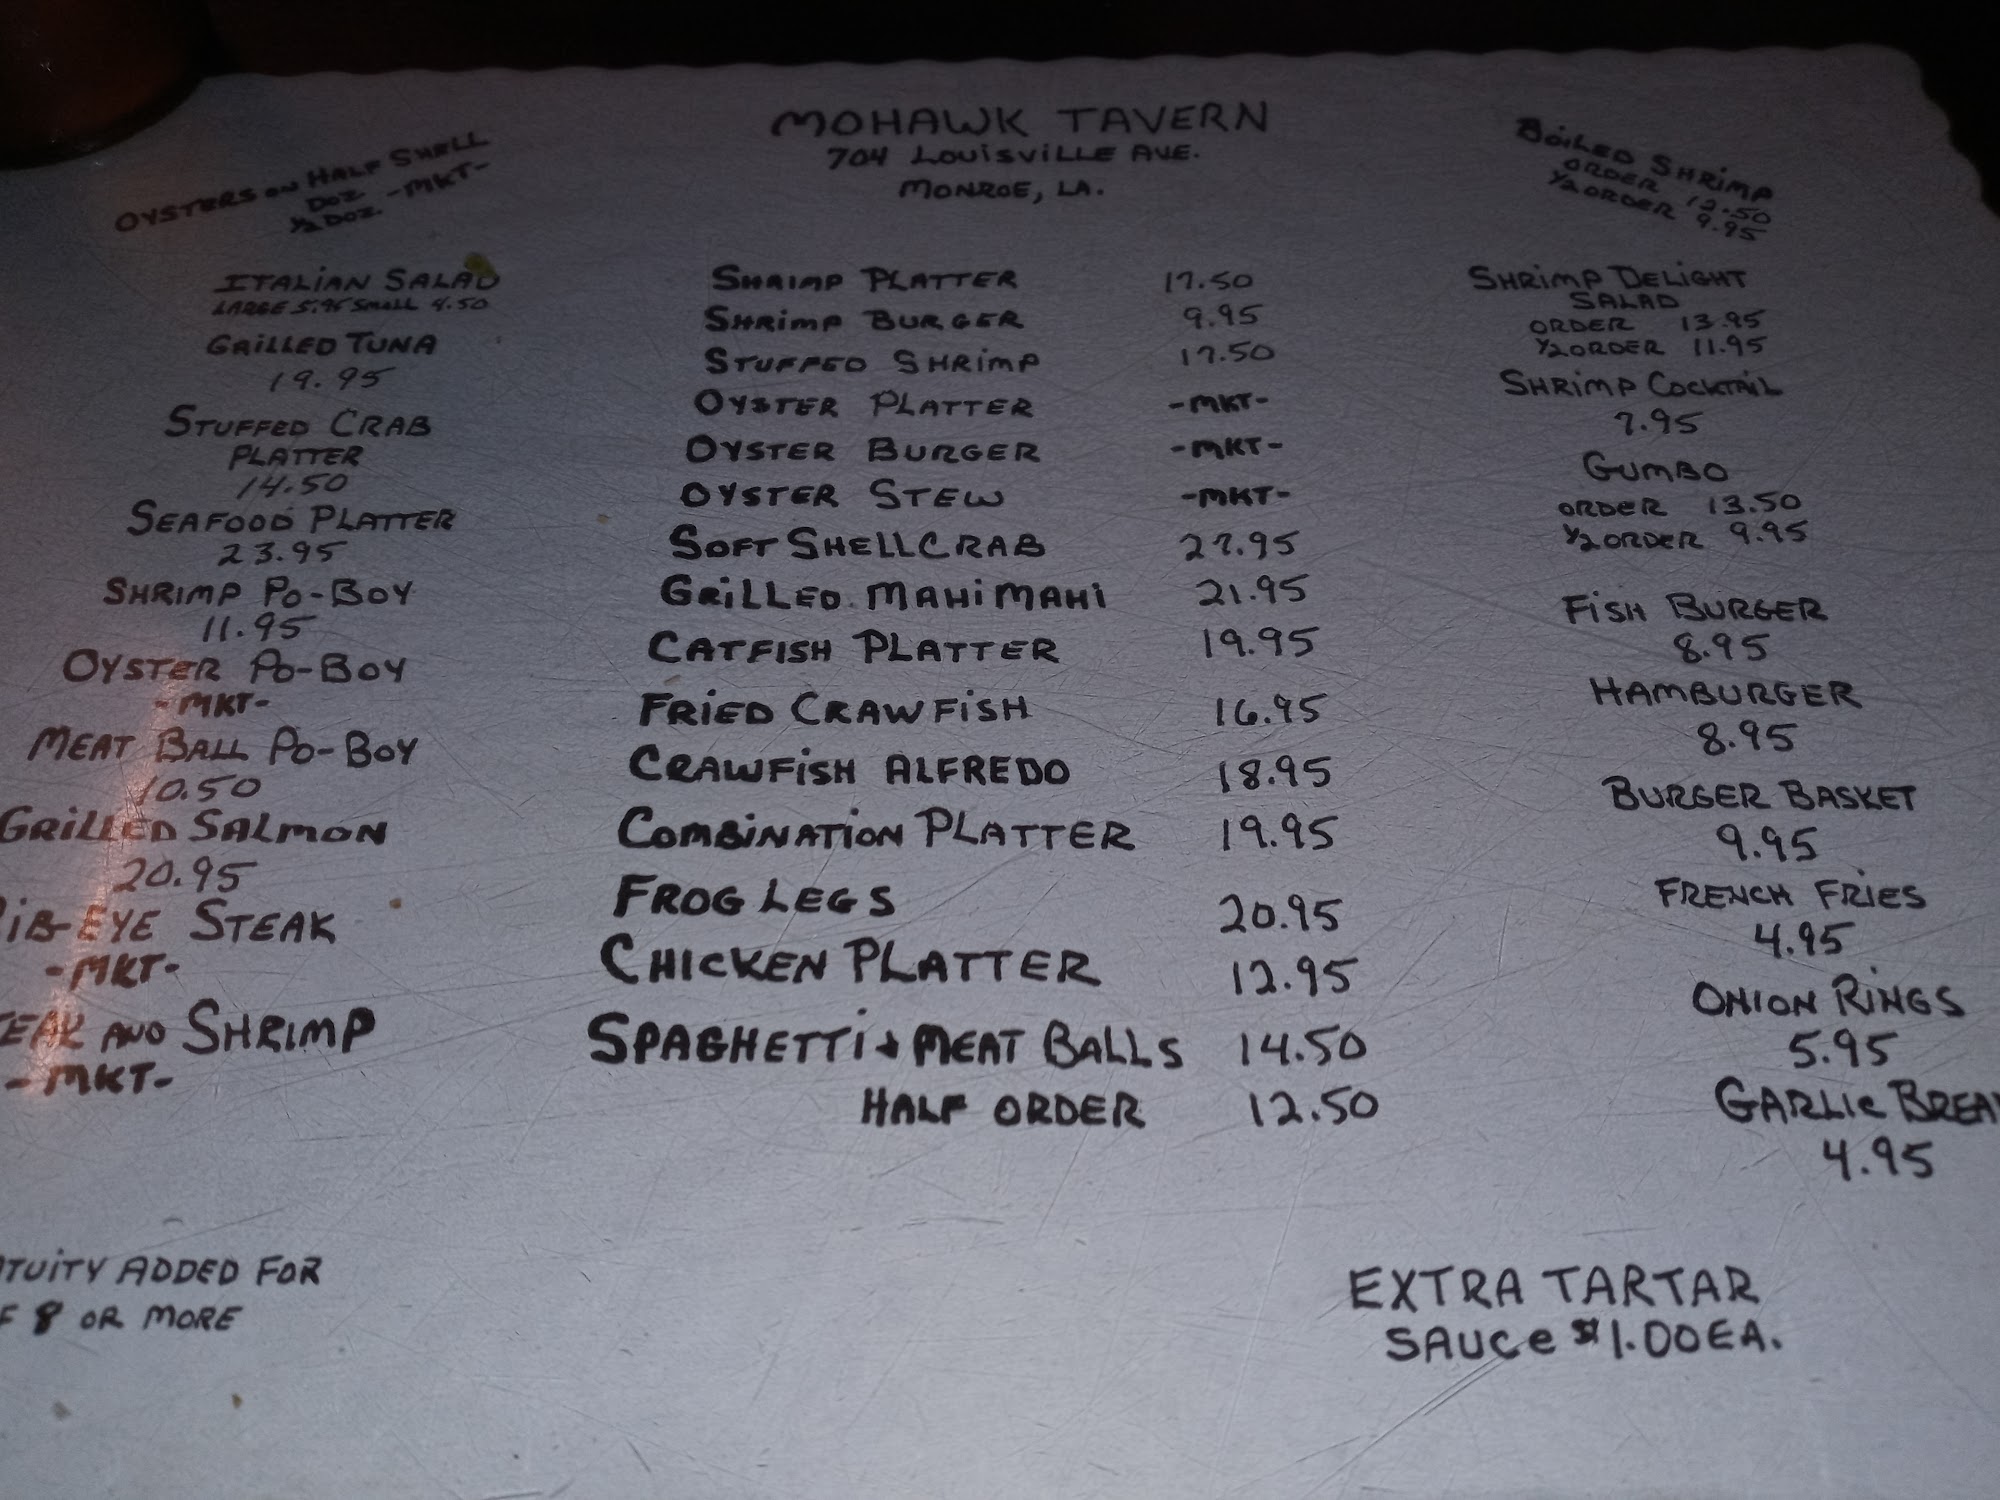 MOHAWK TAVERN
704 LOUISVILLE AVE.
MONROE, LA.
OYSTERS ON HALF SHELL
DOZ
1/2 DOZ. -MKT-
ITALIAN SALAD
LARGE 5.95 SMALL 4.50
GRILLED TUNA
19.95
STUFFED CRAB
PLATTER
14.50
SEAFOOD PLATTER
23.95
SHRIMP PO-BOY
11.95
OYSTER PO-BOY
-MKT-
MEAT BALL PO-BOY
10.50
GRILLED SALMON
20.95
IB-EYE STEAK
-MKT-
TEAK AND SHRIMP
-MKT-
TUITY ADDED FOR
F 8 OR MORE
SHRIMP PLATTER 17.50
SHRIMP BURGER 9.95
STUFFED SHRIMP 17.50
OYSTER PLATTER -MKT-
OYSTER BURGER -MKT-
OYSTER STEW -MKT-
SOFT SHELL CRAB 27.95
GRILLED MAHI MAHI 21.95
CATFISH PLATTER 19.95
FRIED CRAWFISH 16.95
CRAWFISH ALFREDO 18.95
COMBINATION PLATTER 19.95
FROG LEGS 20.95
CHICKEN PLATTER 12.95
SPAGHETTI + MEAT BALLS 14.50
HALF ORDER 12.50
BOILED SHRIMP
ORDER 12.50
1/2 ORDER 9.95
SHRIMP DELIGHT
SALAD
ORDER 13.95
1/2 ORDER 11.95
SHRIMP COCKTAIL
7.95
GUMBO
ORDER 13.50
1/2 ORDER 9.95
FISH BURGER
8.95
HAMBURGER
8.95
BURGER BASKET
9.95
FRENCH FRIES
4.95
ONION RINGS
5.95
GARLIC BREA
4.95
EXTRA TARTAR
SAUCE $1.00 EA.